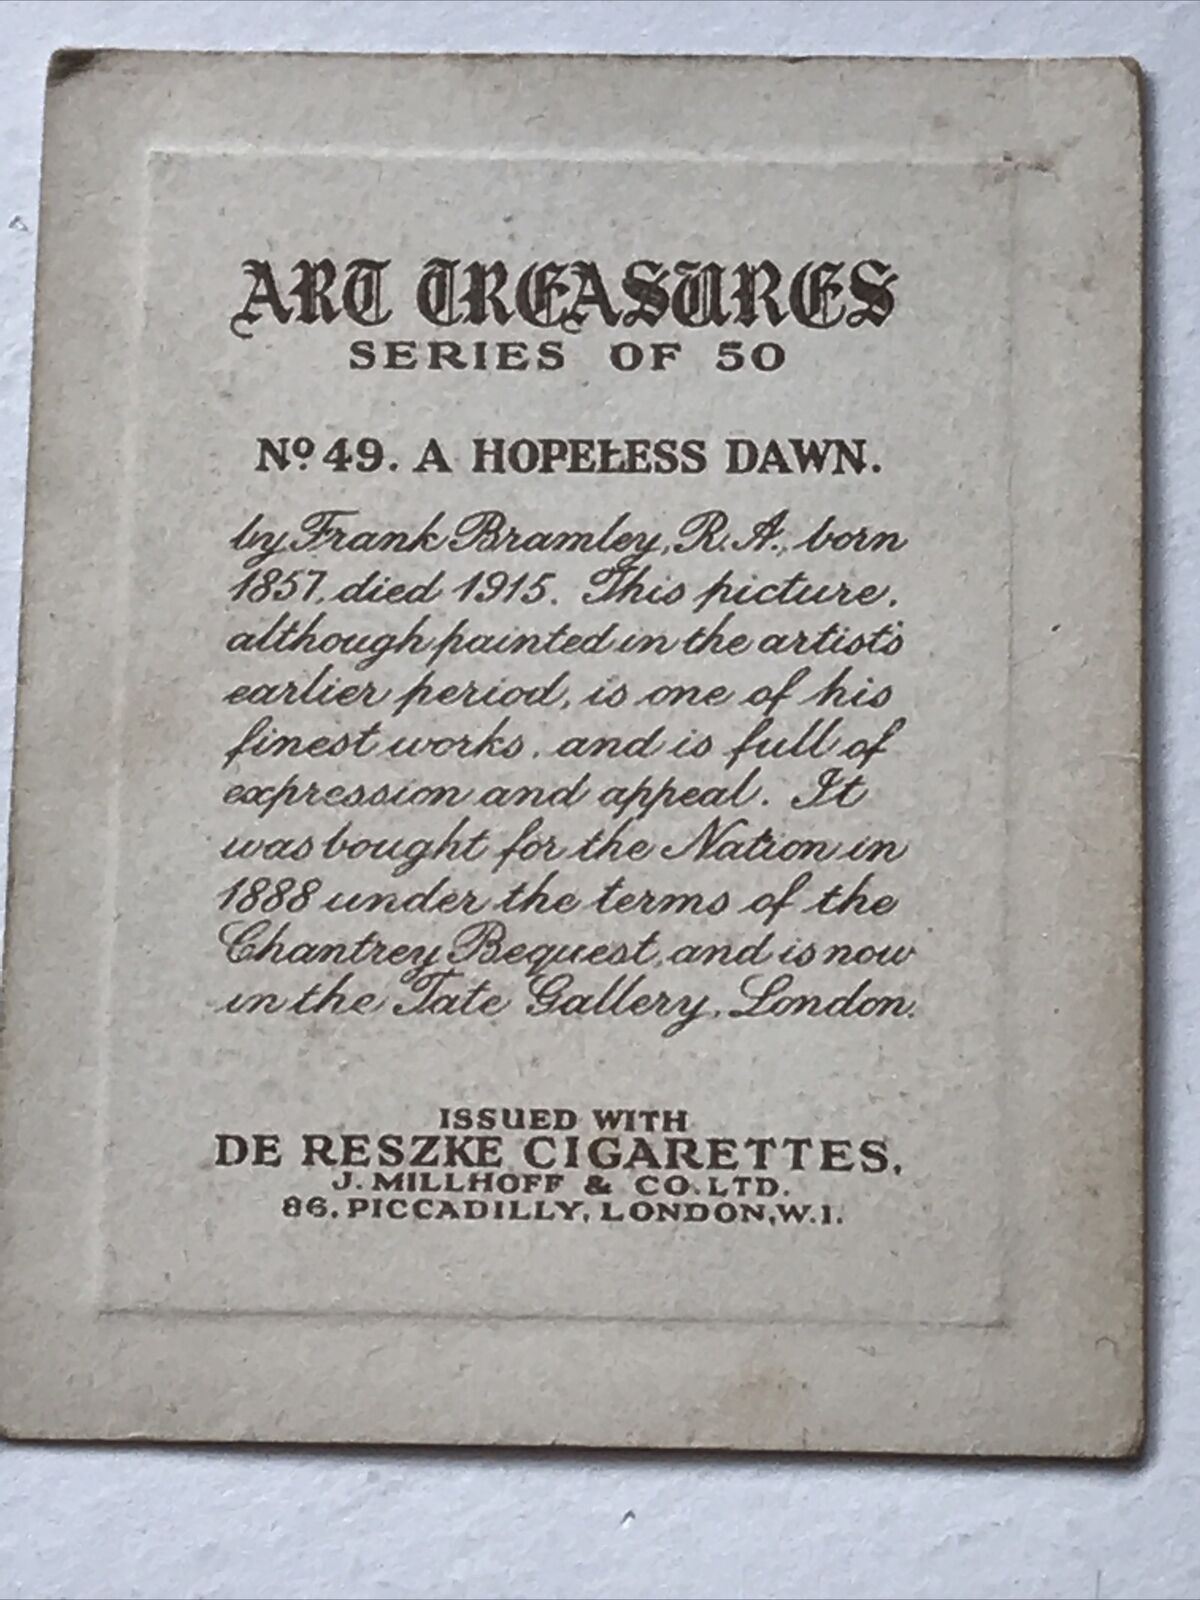 ART TREASURES
SERIES OF 50
Nº 49. A HOPELESS DAWN.
by Frank Bramley, R.A., born
1857, died 1915. This picture,
although painted in the artist's
earlier period, is one of his
finest works, and is full of
expression and appeal. It
was bought for the Nation in
1888 under the terms of the
Chantrey Bequest, and is now
in the Tate Gallery, London.
ISSUED WITH
DE RESZKE CIGARETTES.
J. MILLHOFF & CO. LTD.
86, PICCADILLY, LONDON, W.1.